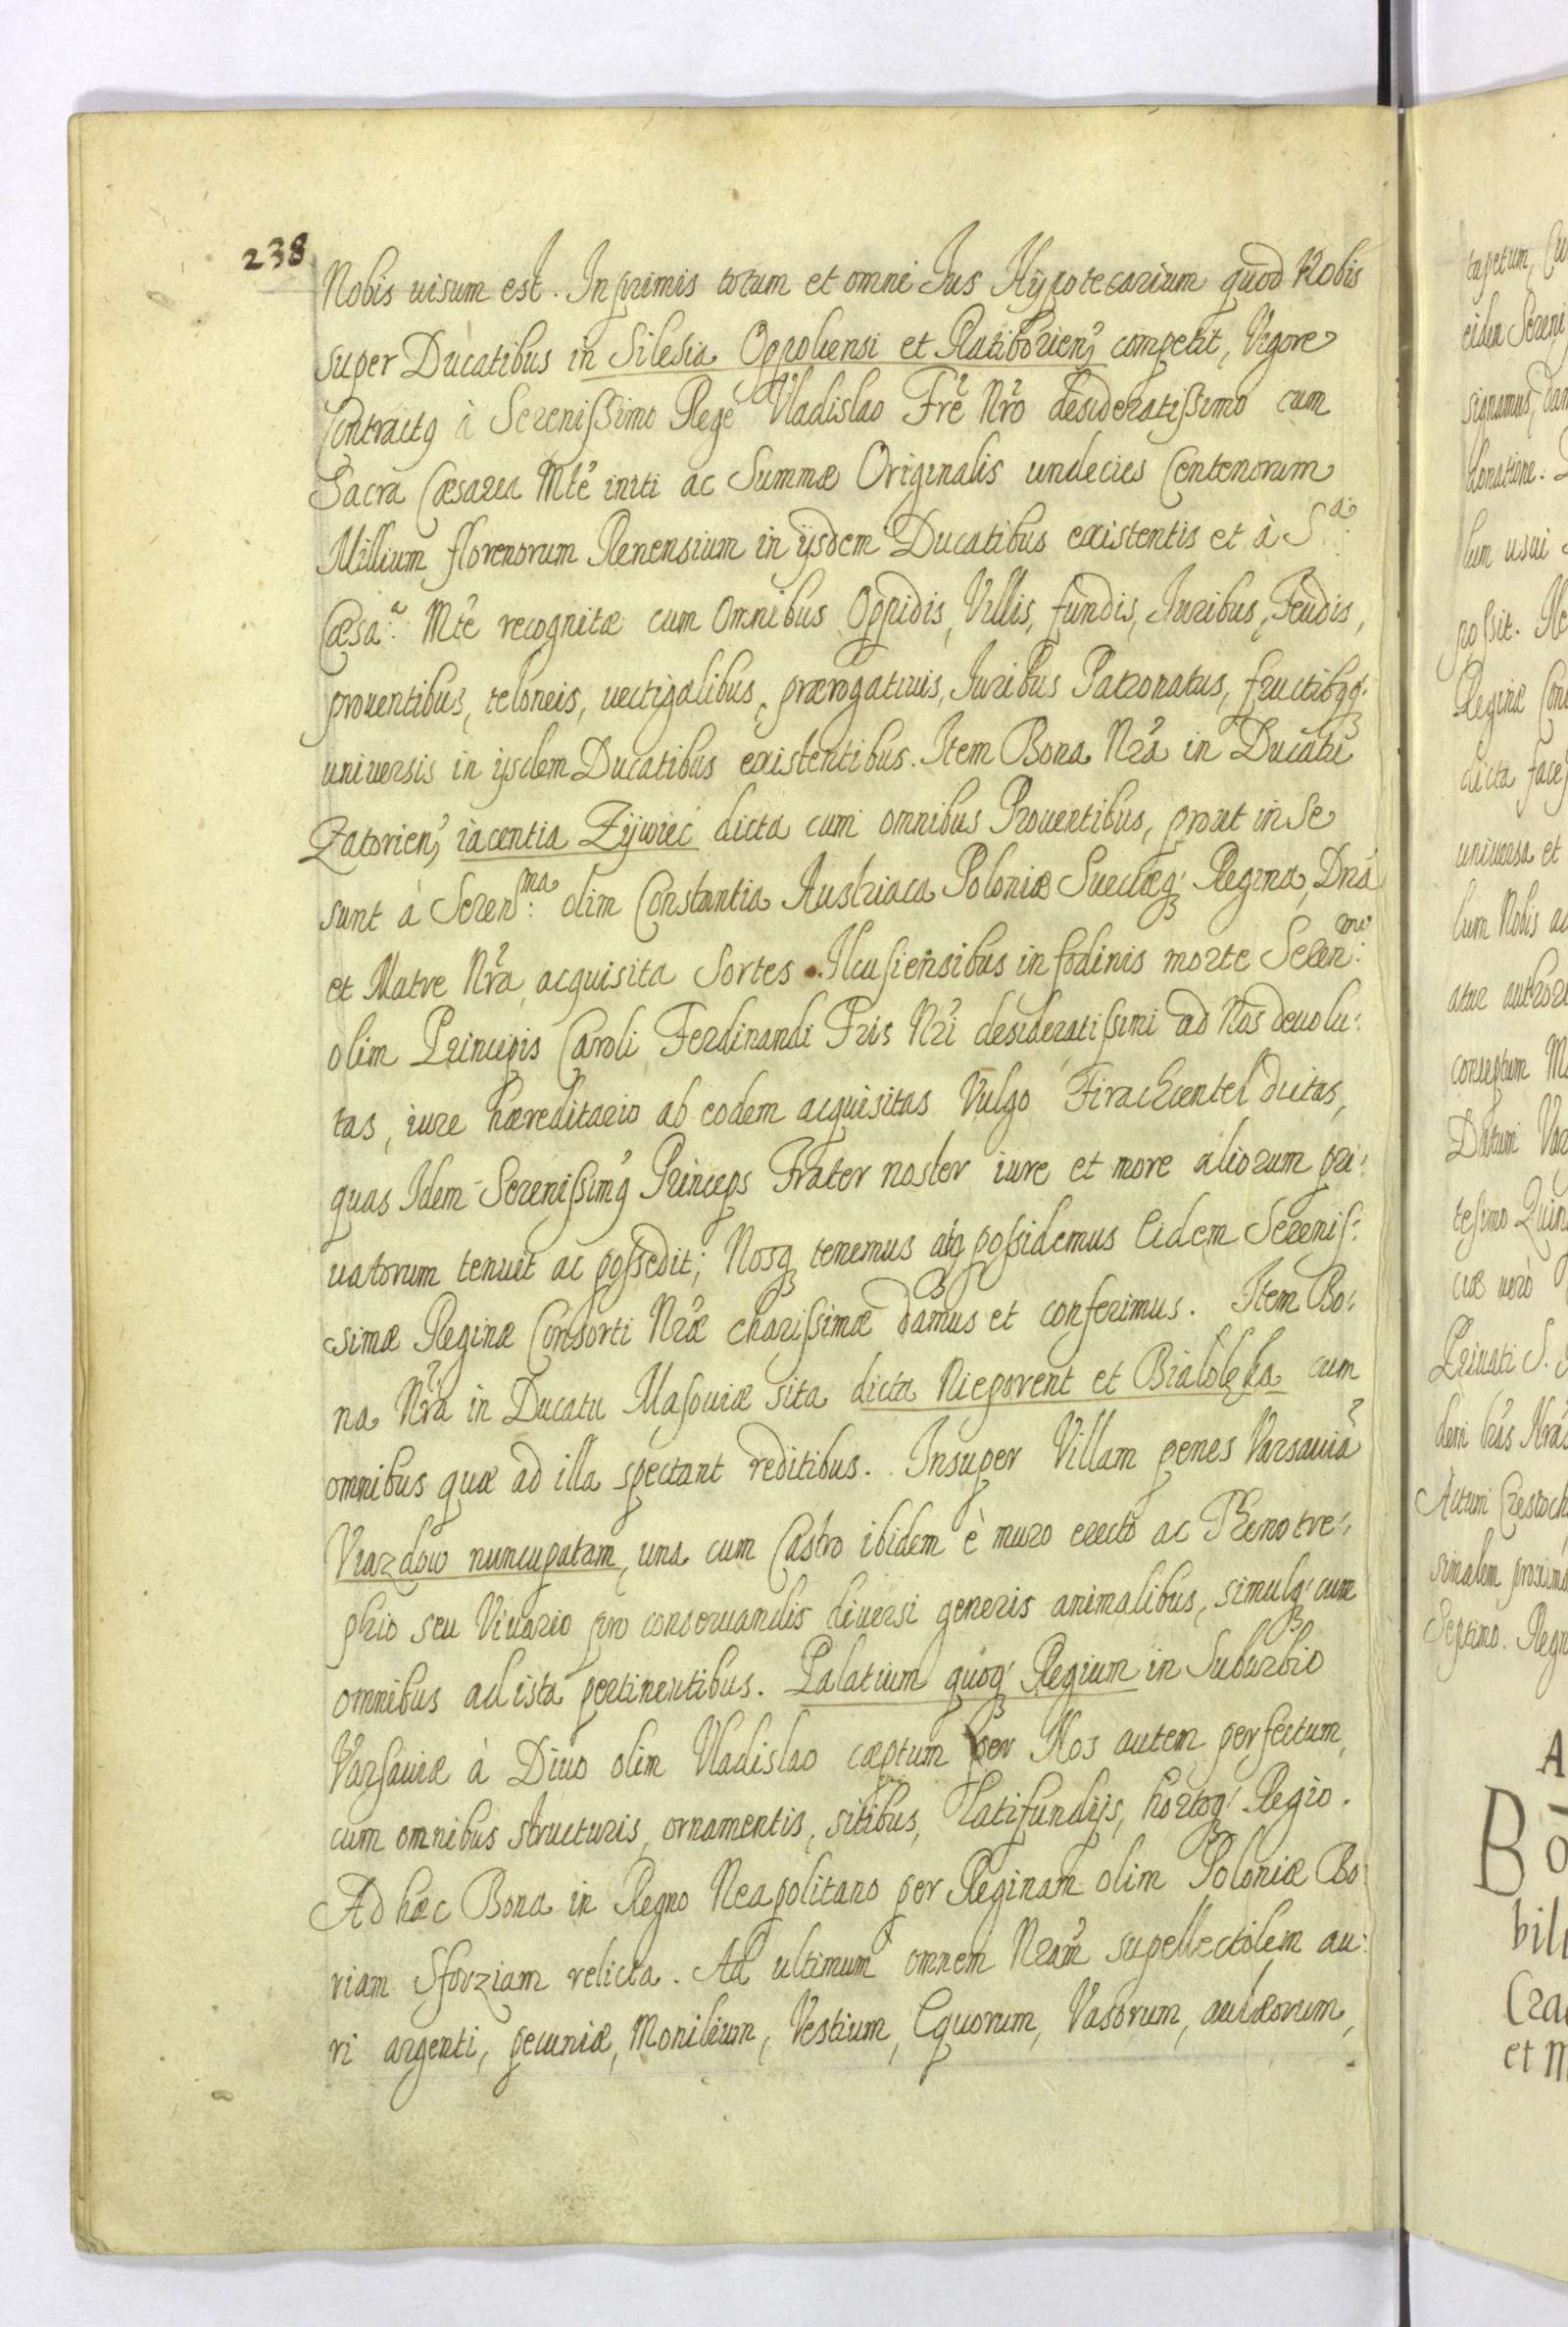 238
Nobis uisum est. In primis totum et omne Ius Hÿpotecarium quod Nobis
super Ducatibus in Silesia Oppoliensi et Ratiborien, competit, Vigore
Contractq à Serenissimo Rege Vladislao Frẽ Nr̃o desideratissimo cum
Sacra Cæsarea Mtẽ initi ac Summæ Originalis undecies Centenorum
Millium florenorum Renensium in ijsdem Ducatibus existentis et à S.ª
Cæsa:ª Mtẽ recognitæ cum Omnibus Oppidis, Villis, fundis, Iuribus, Feudis,
prouentibus, teloneis, uectigalibus, prærogatiuis, Iuribus Patronatus, fructibqq:
uniuersis in ijsdem Ducatibus existentibus. Item Bona Nr̃a in Ducatu
Zatorien, iacentia Zÿwiec dicta cum omnibus Prouentibus, prout in se
sunt à Seren:ma olim Constantia Austriaca Poloniæ Sueciæq; Regina, Dnã
et Matre Nr̃a acquisita Sortes Ilcusiensibus in fodinis morte Seren:mi
olim Principis Caroli Ferdinandi Fr̃is Nr̃i desideratissimi ad Nos deuolu:
tas, iure hæreditario ab eodem acquisitas Vulgo Firachcentel dictas,
quas Idem Serenissimq Princeps Frater noster iure et more aliorum pri:
uatorum tenuit ac possedit; Nosq tenemus atq possidemus Eidem Serenis:
simæ Reginæ Consorti Nr̃æ charissimæ damus et conferimus. Item Bo:
na Nr̃a in Ducatu Masouiæ sita dicta Nieporent et Bialolęka cum
omnibus quæ ad illa spectant reditibus. Insuper Villam penes Varsauiã
Viazdow nuncupatam, una cum Castro ibidem è muro erecto ac Thenotre:
phio seu Viuario pro conseruandis diuersi generis animalibus, simulq; cum
omnibus ad ista pertinentibus. Palatium quoq; Regium in Suburbio
Varsauiæ à Diuo olim Vladislao cæptum per Nos autem perfectum,
cum omnibus structuris, ornamentis, sitibus, Latifundijs, hortoq; Regio.
Ad hæc Bona in Regno Neapolitano per Reginam olim Poloniæ Bo
riam Sforziam relicta. Ad ultimum omnem Nr̃am supellectilem au:
ri argenti, pecuniæ, Monilium, Vestium, Equorum, Vasorum, aulæorum,